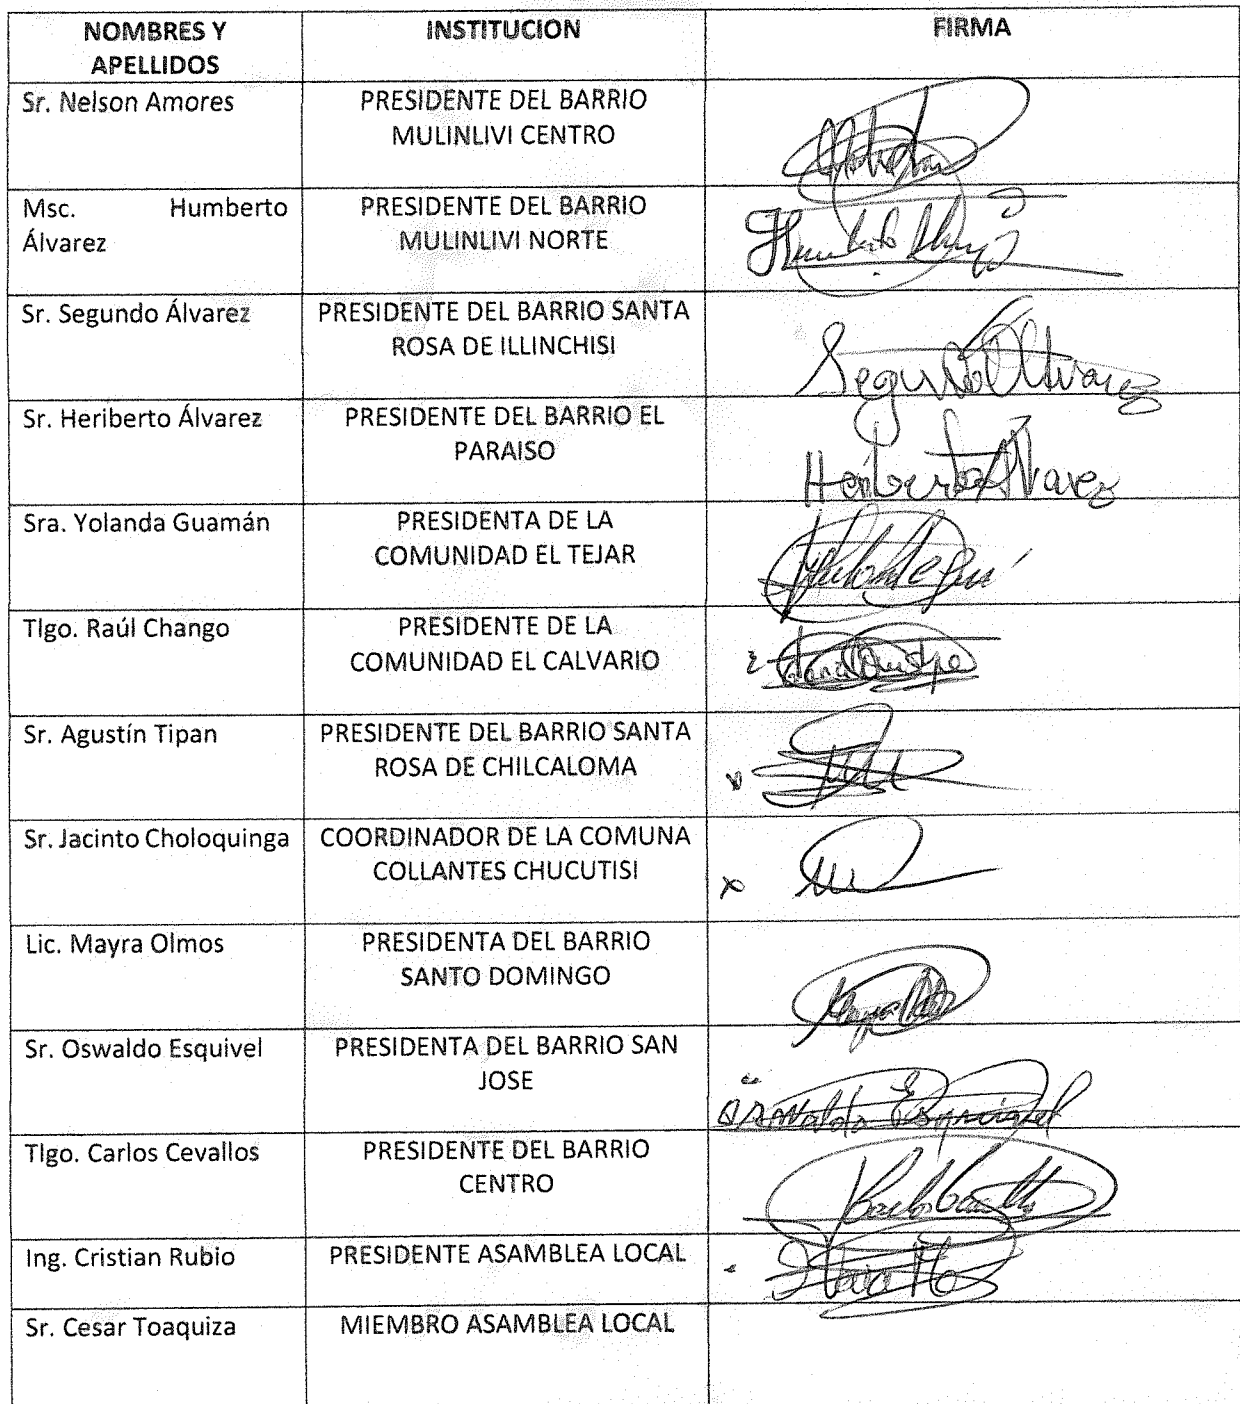 NOMBRES Y
APELLIDOS
INSTITUCION
FIRMA
Sr. Nelson Amores
PRESIDENTE DEL BARRIO
MULINLIVI CENTRO
Msc. Humberto
Álvarez
PRESIDENTE DEL BARRIO
MULINLIVI NORTE
Humberto
Sr. Segundo Álvarez
PRESIDENTE DEL BARRIO SANTA
ROSA DE ILLINCHISI
Segundo Alvarez
Sr. Heriberto Álvarez
PRESIDENTE DEL BARRIO EL
PARAISO
Heriberto Alvarez
Sra. Yolanda Guamán
PRESIDENTA DE LA
COMUNIDAD EL TEJAR
Tlgo. Raúl Chango
PRESIDENTE DE LA
COMUNIDAD EL CALVARIO
Sr. Agustín Tipan
PRESIDENTE DEL BARRIO SANTA
ROSA DE CHILCALOMA
Sr. Jacinto Choloquinga
COORDINADOR DE LA COMUNA
COLLANTES CHUCUTISI
Lic. Mayra Olmos
PRESIDENTA DEL BARRIO
SANTO DOMINGO
Sr. Oswaldo Esquivel
PRESIDENTA DEL BARRIO SAN
JOSE
Tlgo. Carlos Cevallos
PRESIDENTE DEL BARRIO
CENTRO
Ing. Cristian Rubio
PRESIDENTE ASAMBLEA LOCAL
Sr. Cesar Toaquiza
MIEMBRO ASAMBLEA LOCAL